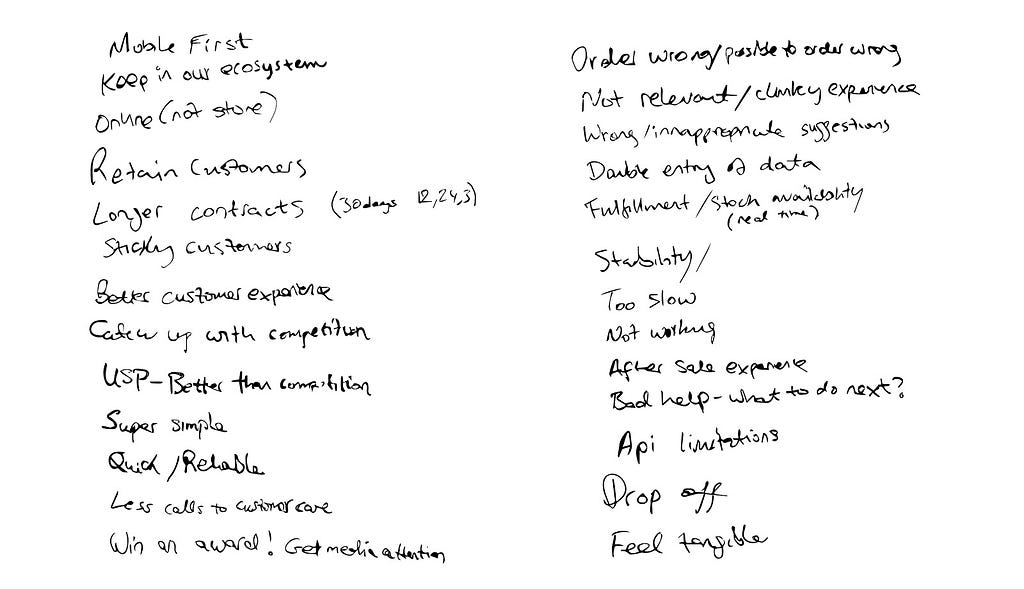 Mobile First
Keep in our ecosystem
Online (not store)
Retain Customers
Longer contracts (30 days 12,24,3)
Sticky customers
Better customer experience
Catch up with competition
USP - Better than competition
Super simple
Quick / Reliable
Less calls to customer care
Win an award! Get media attention
Order wrong/possible to order wrong
Not relevant / clunky experience
Wrong/innappropriate suggestions
Double entry of data
Fulfillment / Stock availability
(real time)
Stability /
Too slow
Not working
After sale experience
Bad help - what to do next?
Api limitations
Drop off
Feel tangible